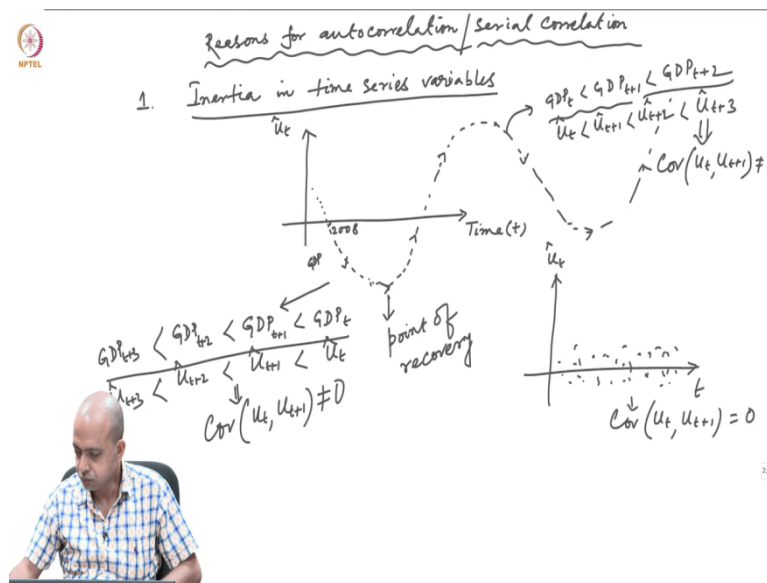 Reasons for autocorrelation/serial correlation
NPTEL
1. Inertia in time series variables
GDPt < GDPt+1 < GDPt+2
ût < ût+1 < ût+2 < ût+3
⇓
Cov(ut, ut+1) ≠
ût
2008
Time(t)
GDP
point of
recovery
GDPt+3 < GDPt+2 < GDPt+1 < GDPt
ût+3 < ût+2 < ût+1 < ût
⇓
Cov(ut, ut+1) ≠ 0
ût
t
Cov(ut, ut+1) = 0